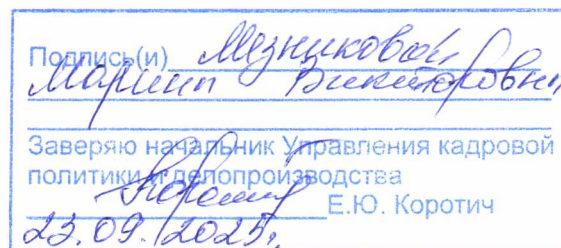 Подпись(и) Мезниковой
Марины Викторовны
Заверяю начальник Управления кадровой
политики и делопроизводства
Е.Ю. Коротич
23.09.2025г.